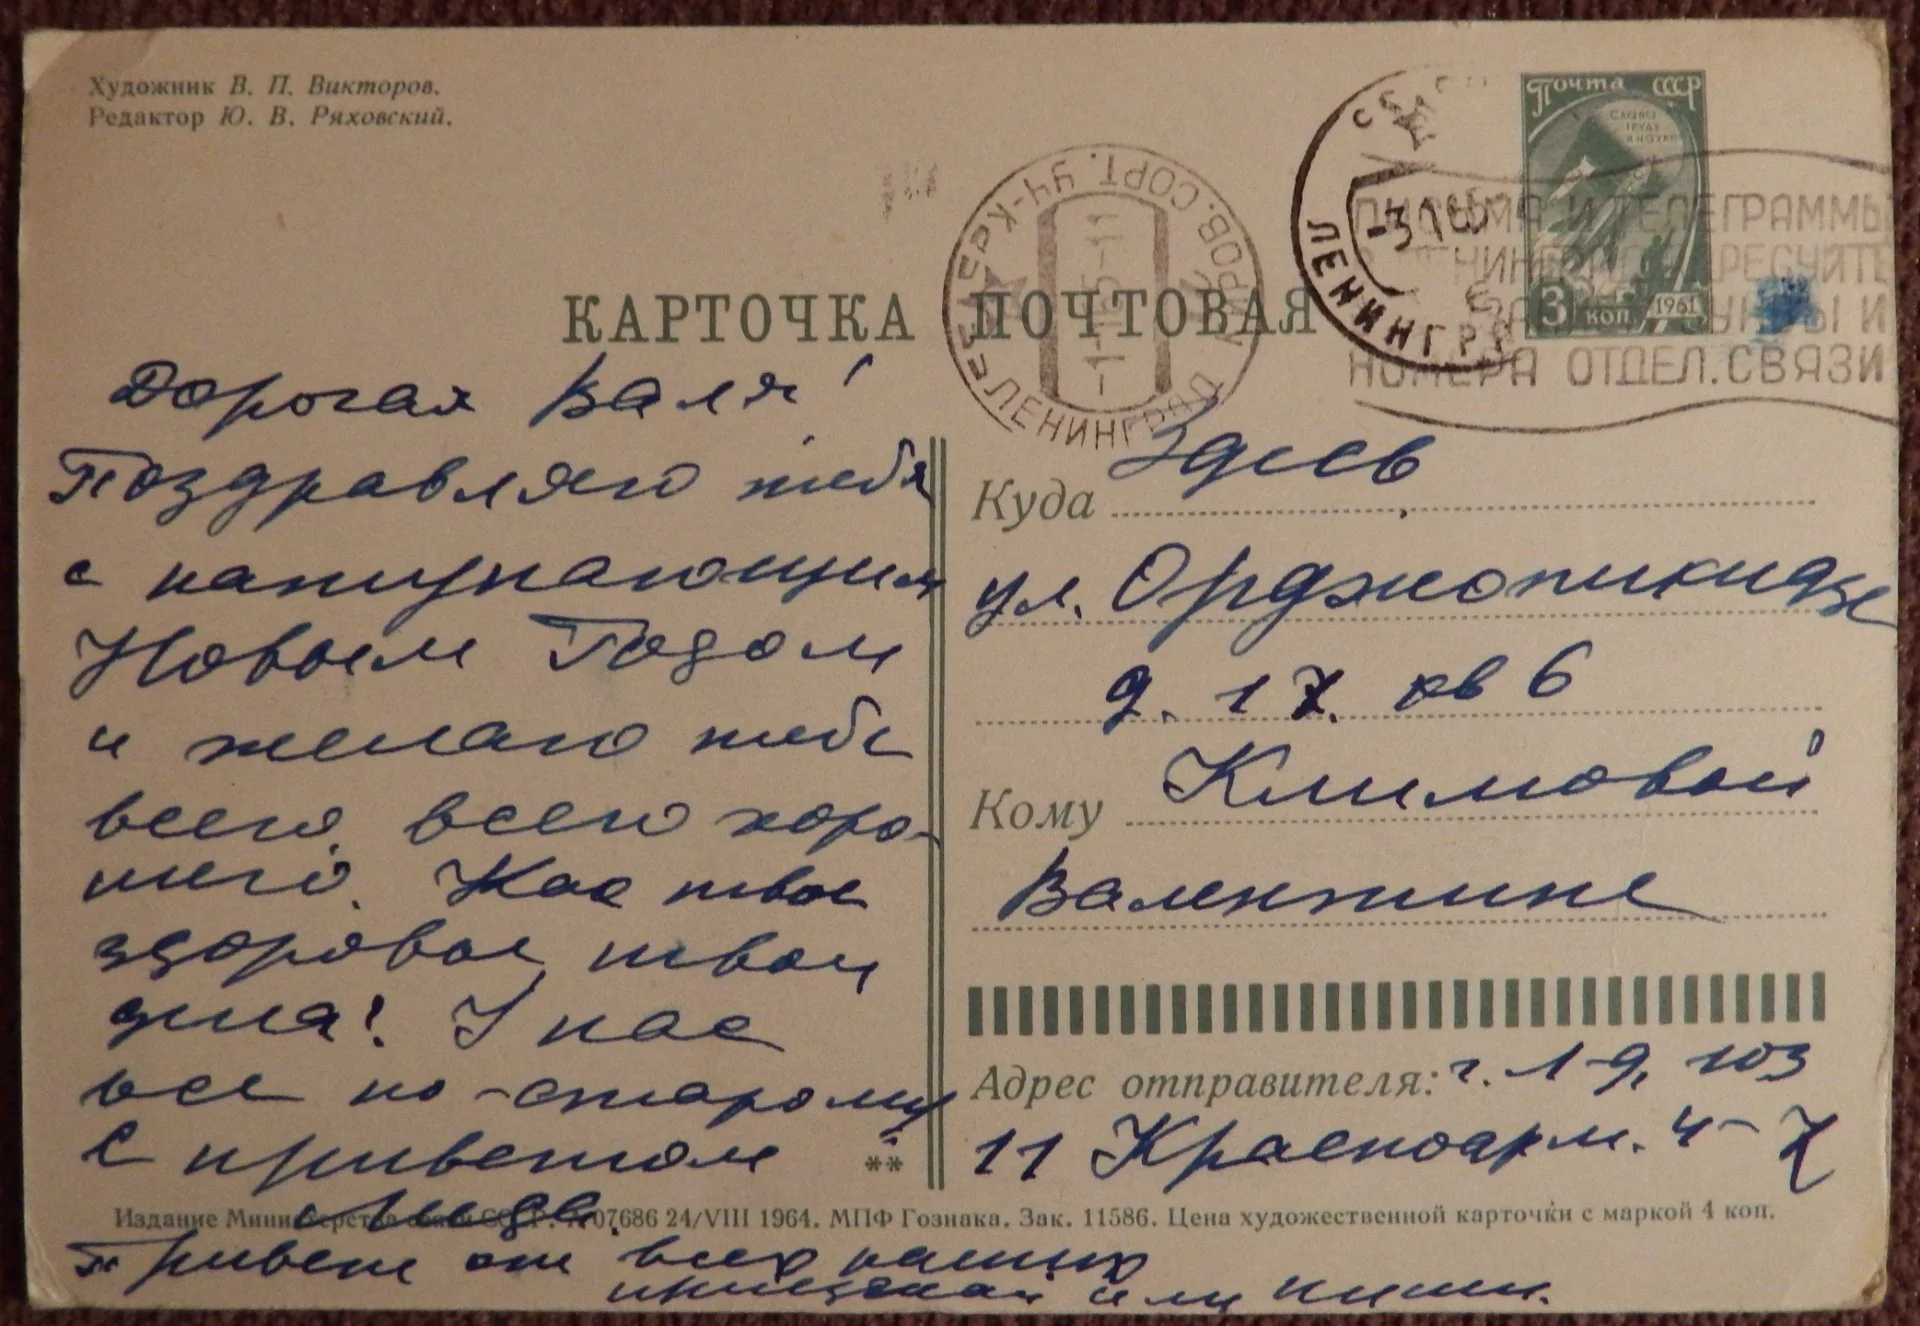 Художник В. П. Викторов.
Редактор Ю. В. Ряховский.
Почта СССР
СЛАВА
ТРУДУ
И НАУКЕ
3 коп. 1961
ЛЕНИНГРАД
-3 1 65
ПИСЬМА И ТЕЛЕГРАММЫ
НОМЕРА ОТДЕЛ. СВЯЗИ
ЛЕНИНГРАД
-1-1-65-11
КАРТОЧКА ПОЧТОВАЯ
Дорогая Валя!
Поздравляю тебя
с наступающим
Новым Годом
и желаю тебе
всего, всего хоро-
шего. Как твое
здоровье, твои
дела? У нас
все по-старому
С приветом
Люда.
Привет от всех наших
или пиши.
Куда Здесь
ул. Орджоникидзе
д. 17. кв 6
Кому Климовой
Валентине
Адрес отправителя: г. Л-д, 103
11 Красноарм. 4-7
**
Издание Министерства связи СССР. 07686 24/VIII 1964. МПФ Гознака. Зак. 11586. Цена художественной карточки с маркой 4 коп.